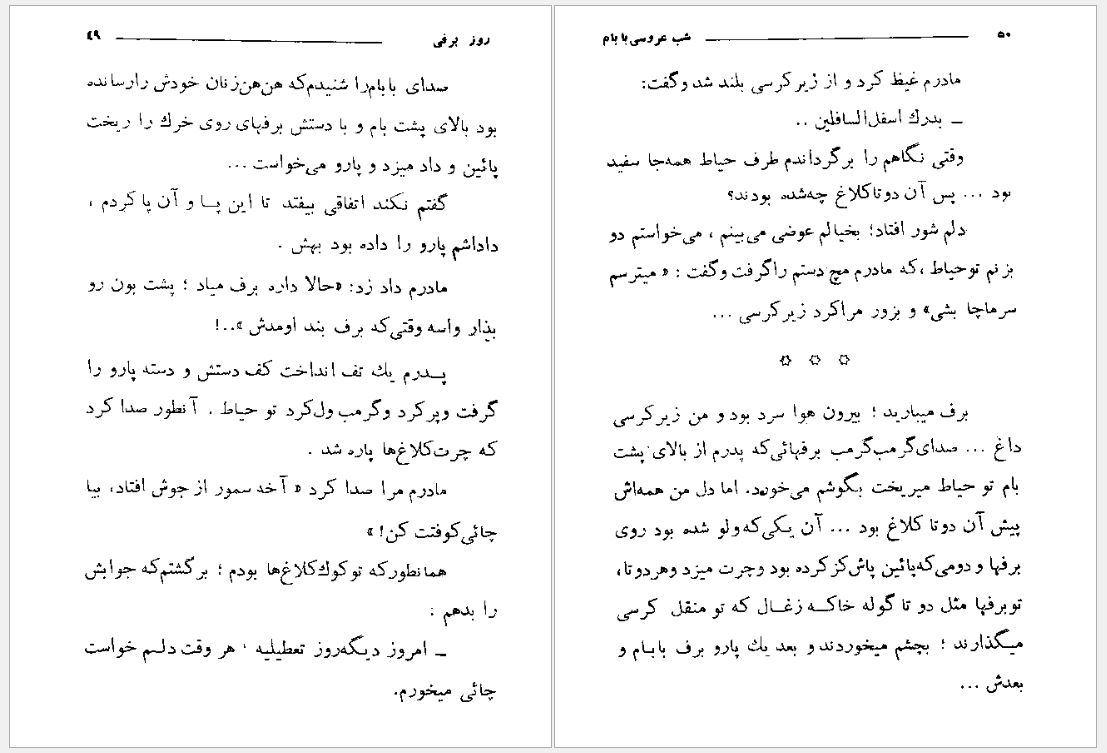 روز برفی ۴۹
صدای بابام‌را شنیدم‌که هن‌هن‌زنان خودش رارسانده
بود بالای پشت بام و با دستش برفهای روی خرك را ریخت
پائین و داد میزد و پارو می‌خواست ...
گفتم نکند اتفاقی بیفتد تا این پا و آن پا کردم ،
داداشم پارو را داده بود بهش .
مادرم داد زد: «حالا داره برف میاد ؛ پشت بون رو
بذار واسه وقتی‌که برف بند اومدش »..!
پدرم یك تف انداخت کف دستش و دسته پارو را
گرفت وپرکرد وگرمب ول‌کرد تو حیاط . آنطور صدا کرد
که چرت‌کلاغ‌ها پاره شد .
مادرم مرا صدا کرد « آخه سمور از جوش افتاد، بیا
چائی‌کوفتت کن! »
همانطورکه توکوك‌کلاغ‌ها بودم ؛ برگشتم‌که جوابش
را بدهم :
ـ امروز دیگه‌روز تعطیلیه ؛ هر وقت دلم خواست
چائی میخورم.
شب عروسی بابام ۵۰
مادرم غیظ کرد و از زیرکرسی بلند شد وگفت:
ـ بدرك اسفل‌السافلین ..
وقتی نگاهم را برگرداندم طرف حیاط همه‌جا سفید
بود ... پس آن دوتاکلاغ چه‌شده بودند؟
دلم شور افتاد؛ بخیالم عوضی می‌بینم ، می‌خواستم دو
بزنم توحیاط ،که مادرم مچ دستم راگرفت وگفت : « میترسم
سرماچا بشی» و بزور مراکرد زیرکرسی ...
✡ ✡ ✡
برف میبارید ؛ بیرون هوا سرد بود و من زیرکرسی
داغ ... صدای‌گرمب‌گرمب برفهائی‌که پدرم از بالای پشت
بام تو حیاط میریخت بگوشم می‌خورد. اما دل من همه‌اش
پیش آن دوتا کلاغ بود ... آن یکی‌که‌ولو شده بود روی
برفها و دومی‌که‌پائین پاش‌کزکرده بود وچرت میزد وهردوتا،
توبرفها مثل دو تا گوله خاکه زغال که تو منقل کرسی
میگذارند ؛ بچشم میخوردند و بعد یك پارو برف بابام و
بعدش ...